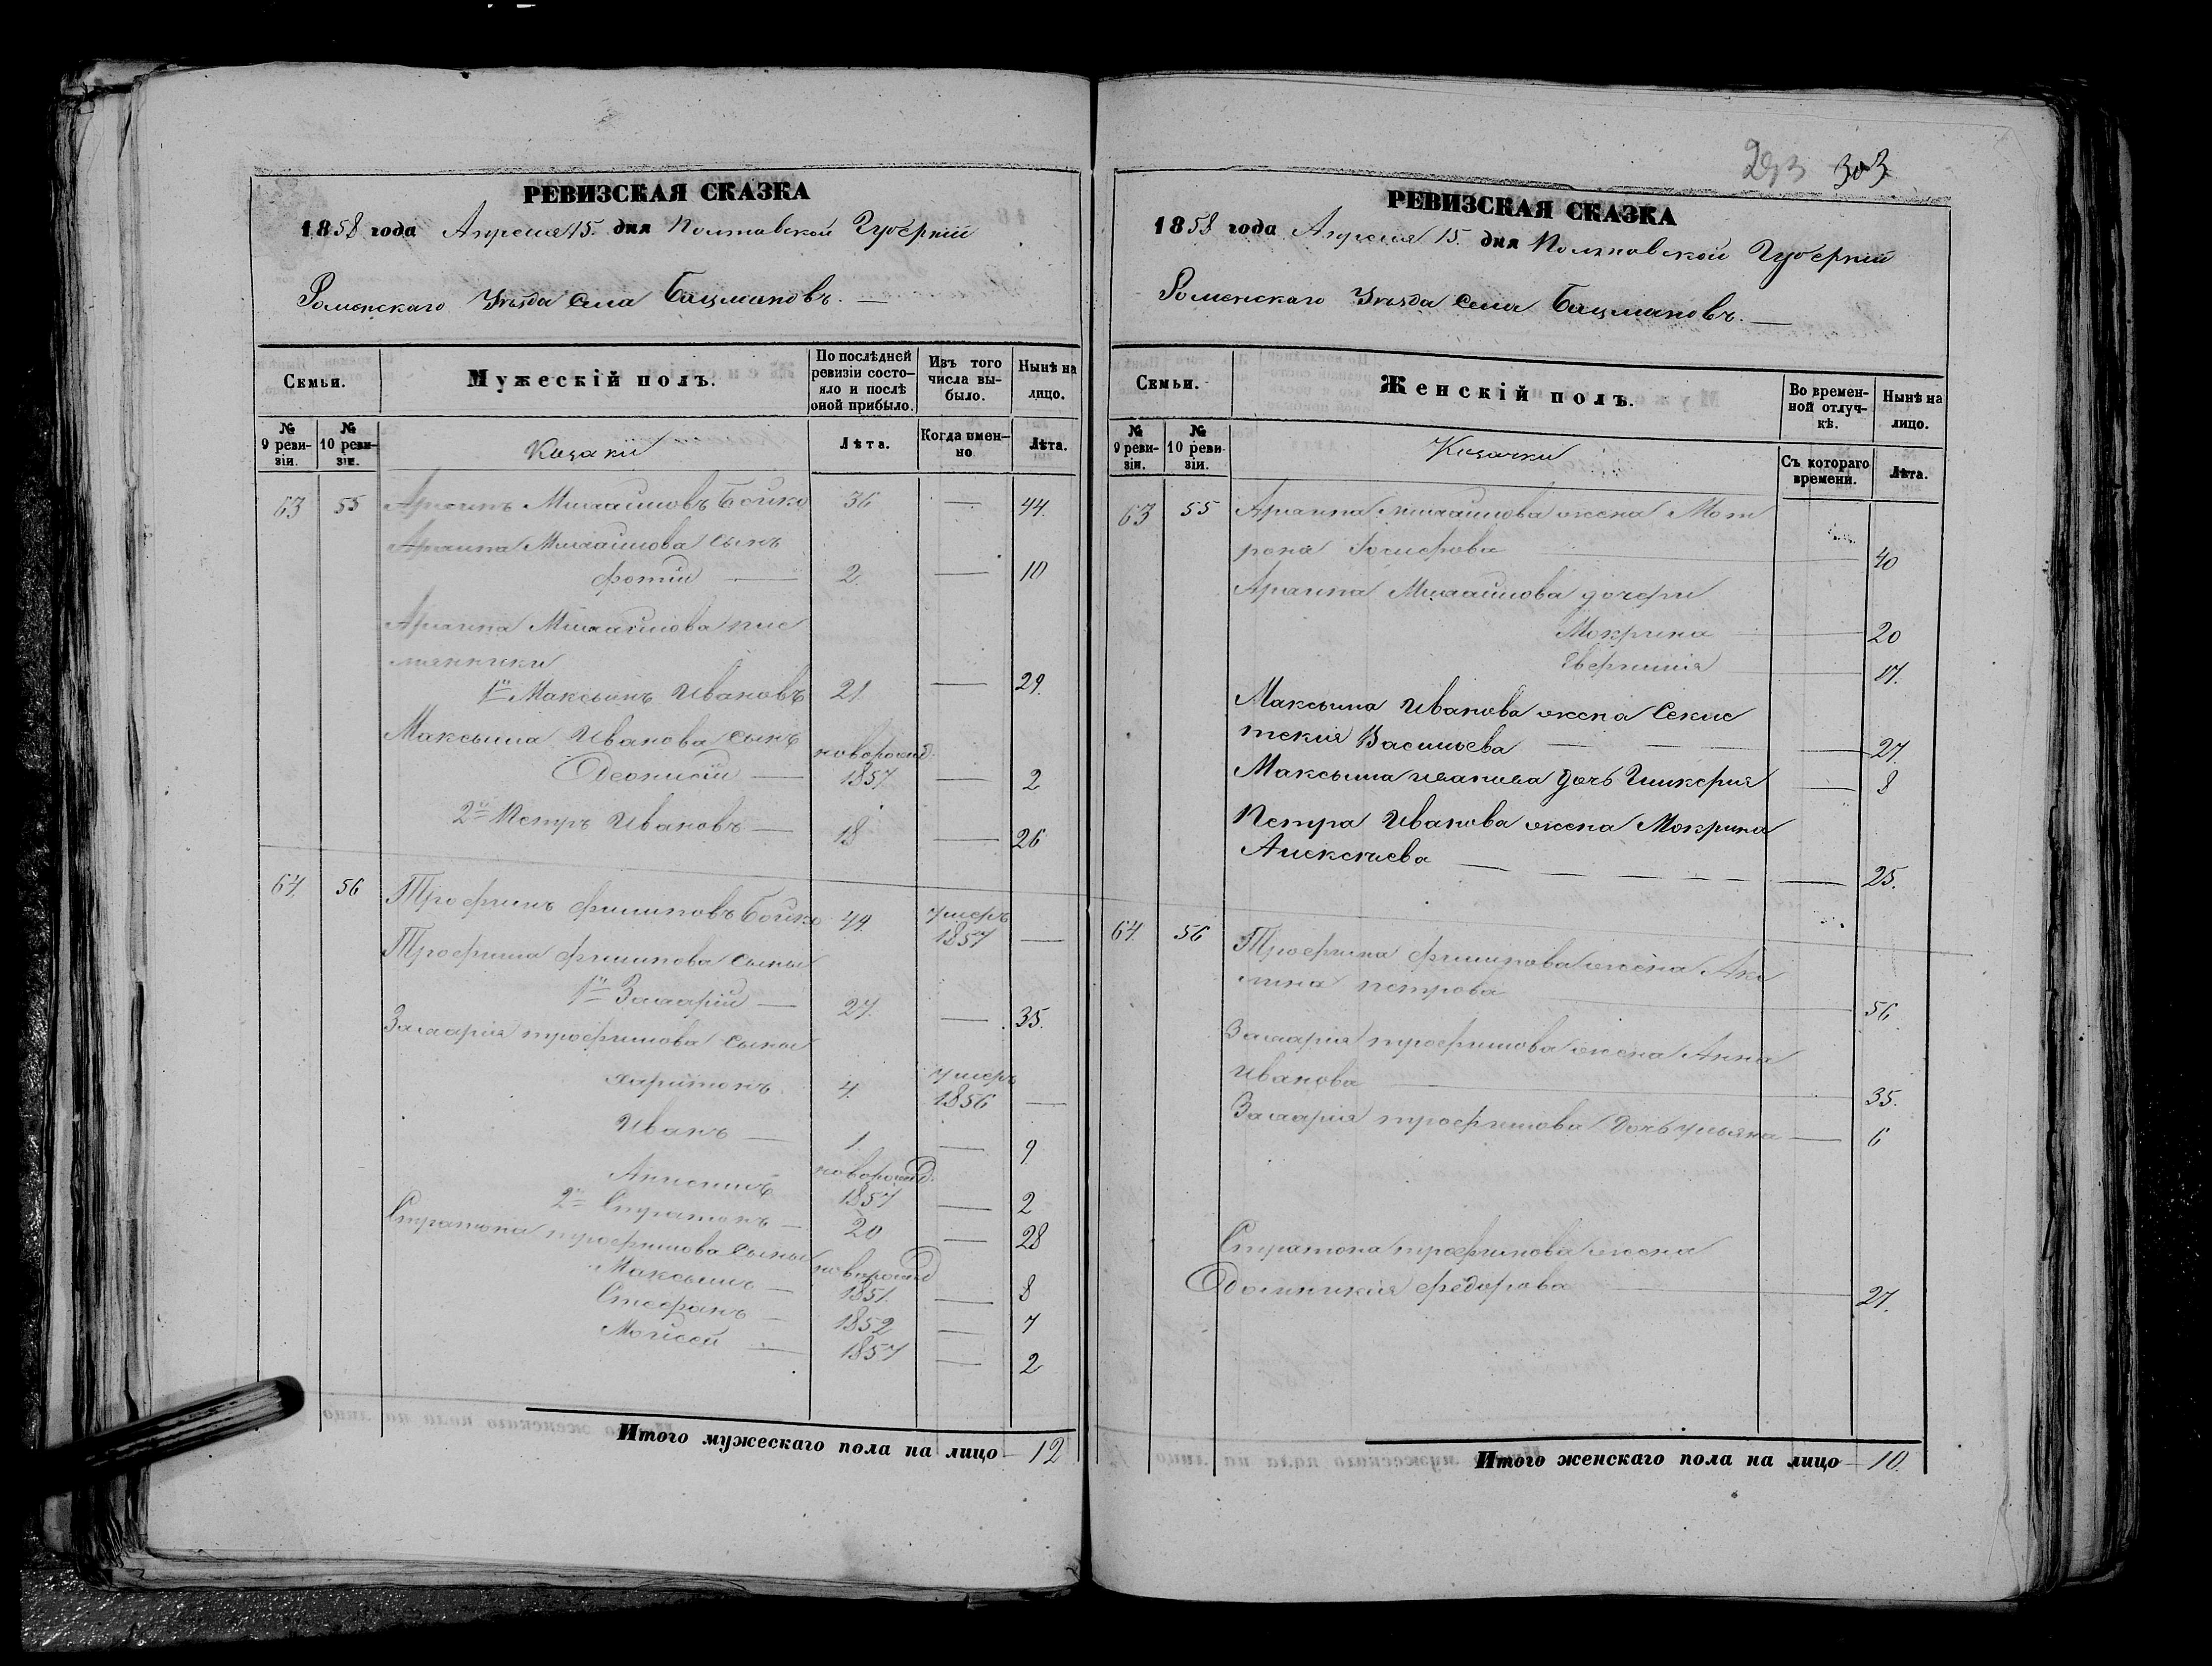 РЕВИЗСКАЯ СКАЗКА
1858 года Апреля 15. дня Полтавской Губерніи
Роменскаго Уѣзда Села Бацмановъ. —
Семьи.
Мужескій полъ.
По послѣдней ревизіи состояло и послѣ оной прибыло.
Изъ того числа выбыло.
Нынѣ на лицо.
№ 9 ревизіи.
№ 10 ревизіи.
Козаки
Лѣта.
Когда именно
Лѣта.
63 55 Михайловъ Бойко 36 — 44.
Михайлова сынъ
Фотій — 2. — 10
Михайлова племянники
1й Максымъ Ивановъ 21 — 29.
Максыма Иванова сынъ новорожд.
Деонисій — 1857 — 2
2й Петръ Ивановъ — 18 — 26
64. 56 Трофимъ Филиповъ Бойко 49. умеръ 1857 —
Трофима Филипова сыны
1й Захарій — 27. — 35.
Захарія Трофимова сыны
Харитонъ 4. умеръ 1856 —
Иванъ — 1. — 9
новорожд. 1857 — 2
2й Стратонъ — 20 — 28
Стратона Трофимова сыны новорожд
Максымъ — 1851. — 8
Стефанъ — 1852 — 7
Мойсей — 1857 — 2
Итого мужескаго пола на лицо — 12
293 303
РЕВИЗСКАЯ СКАЗКА
1858 года Апреля 15. дня Полтавской Губерніи
Роменскаго Уѣзда Села Бацмановъ. —
Семьи.
Женскій полъ.
Во временной отлучкѣ.
Нынѣ на лицо.
№ 9 ревизіи.
№ 10 ревизіи.
Козачки
Съ котораго времени.
Лѣта.
63 55 Михайлова жена Мот
рона — 40
Михайлова дочери
Мокрина — 20
— 17.
Максыма Иванова жена Секле
тския Васильева — — — 27.
Максыма Иванова дочь Гликерія — 8
Петра Иванова жена Мокрина
Алексѣева — — — — 25.
64. 56 Трофима Филипова жена Аки
лина Петрова — 56
Захарія Трофимова жена Анна
Иванова — 35.
Захарія Трофимова дочь Ульяна — 6
Стратона Трофимова жена
Домникія Федорова — 27.
Итого женскаго пола на лицо — 10.